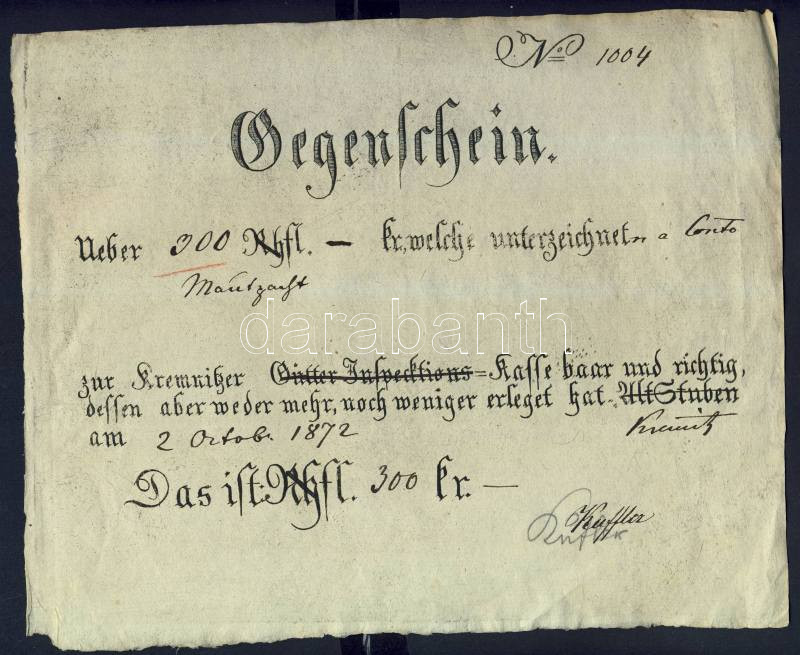 No 1004
Gegenschein.
Ueber 300 Rhfl. — kr, welche unterzeichneter a Conto
Mautpacht
darabanth
zur Kremnitzer Gütter Inspecktions=Kasse baar und richtig,
dessen aber weder mehr, noch weniger erleget hat. Alt Stuben
am 2 Octob. 1872 Kremnitz
Das ist: Rhfl. 300 kr. —
Kuffler
Kuffler